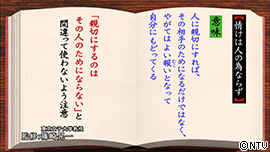 【情けは人の為ならず】
意味
人に親切にすれば、
その相手のためになるだけではなく、
やがてはよい報いとなって
自分にもどってくる
「親切にするのは
その人のためにならない」と
間違って使わないよう注意
©NTV